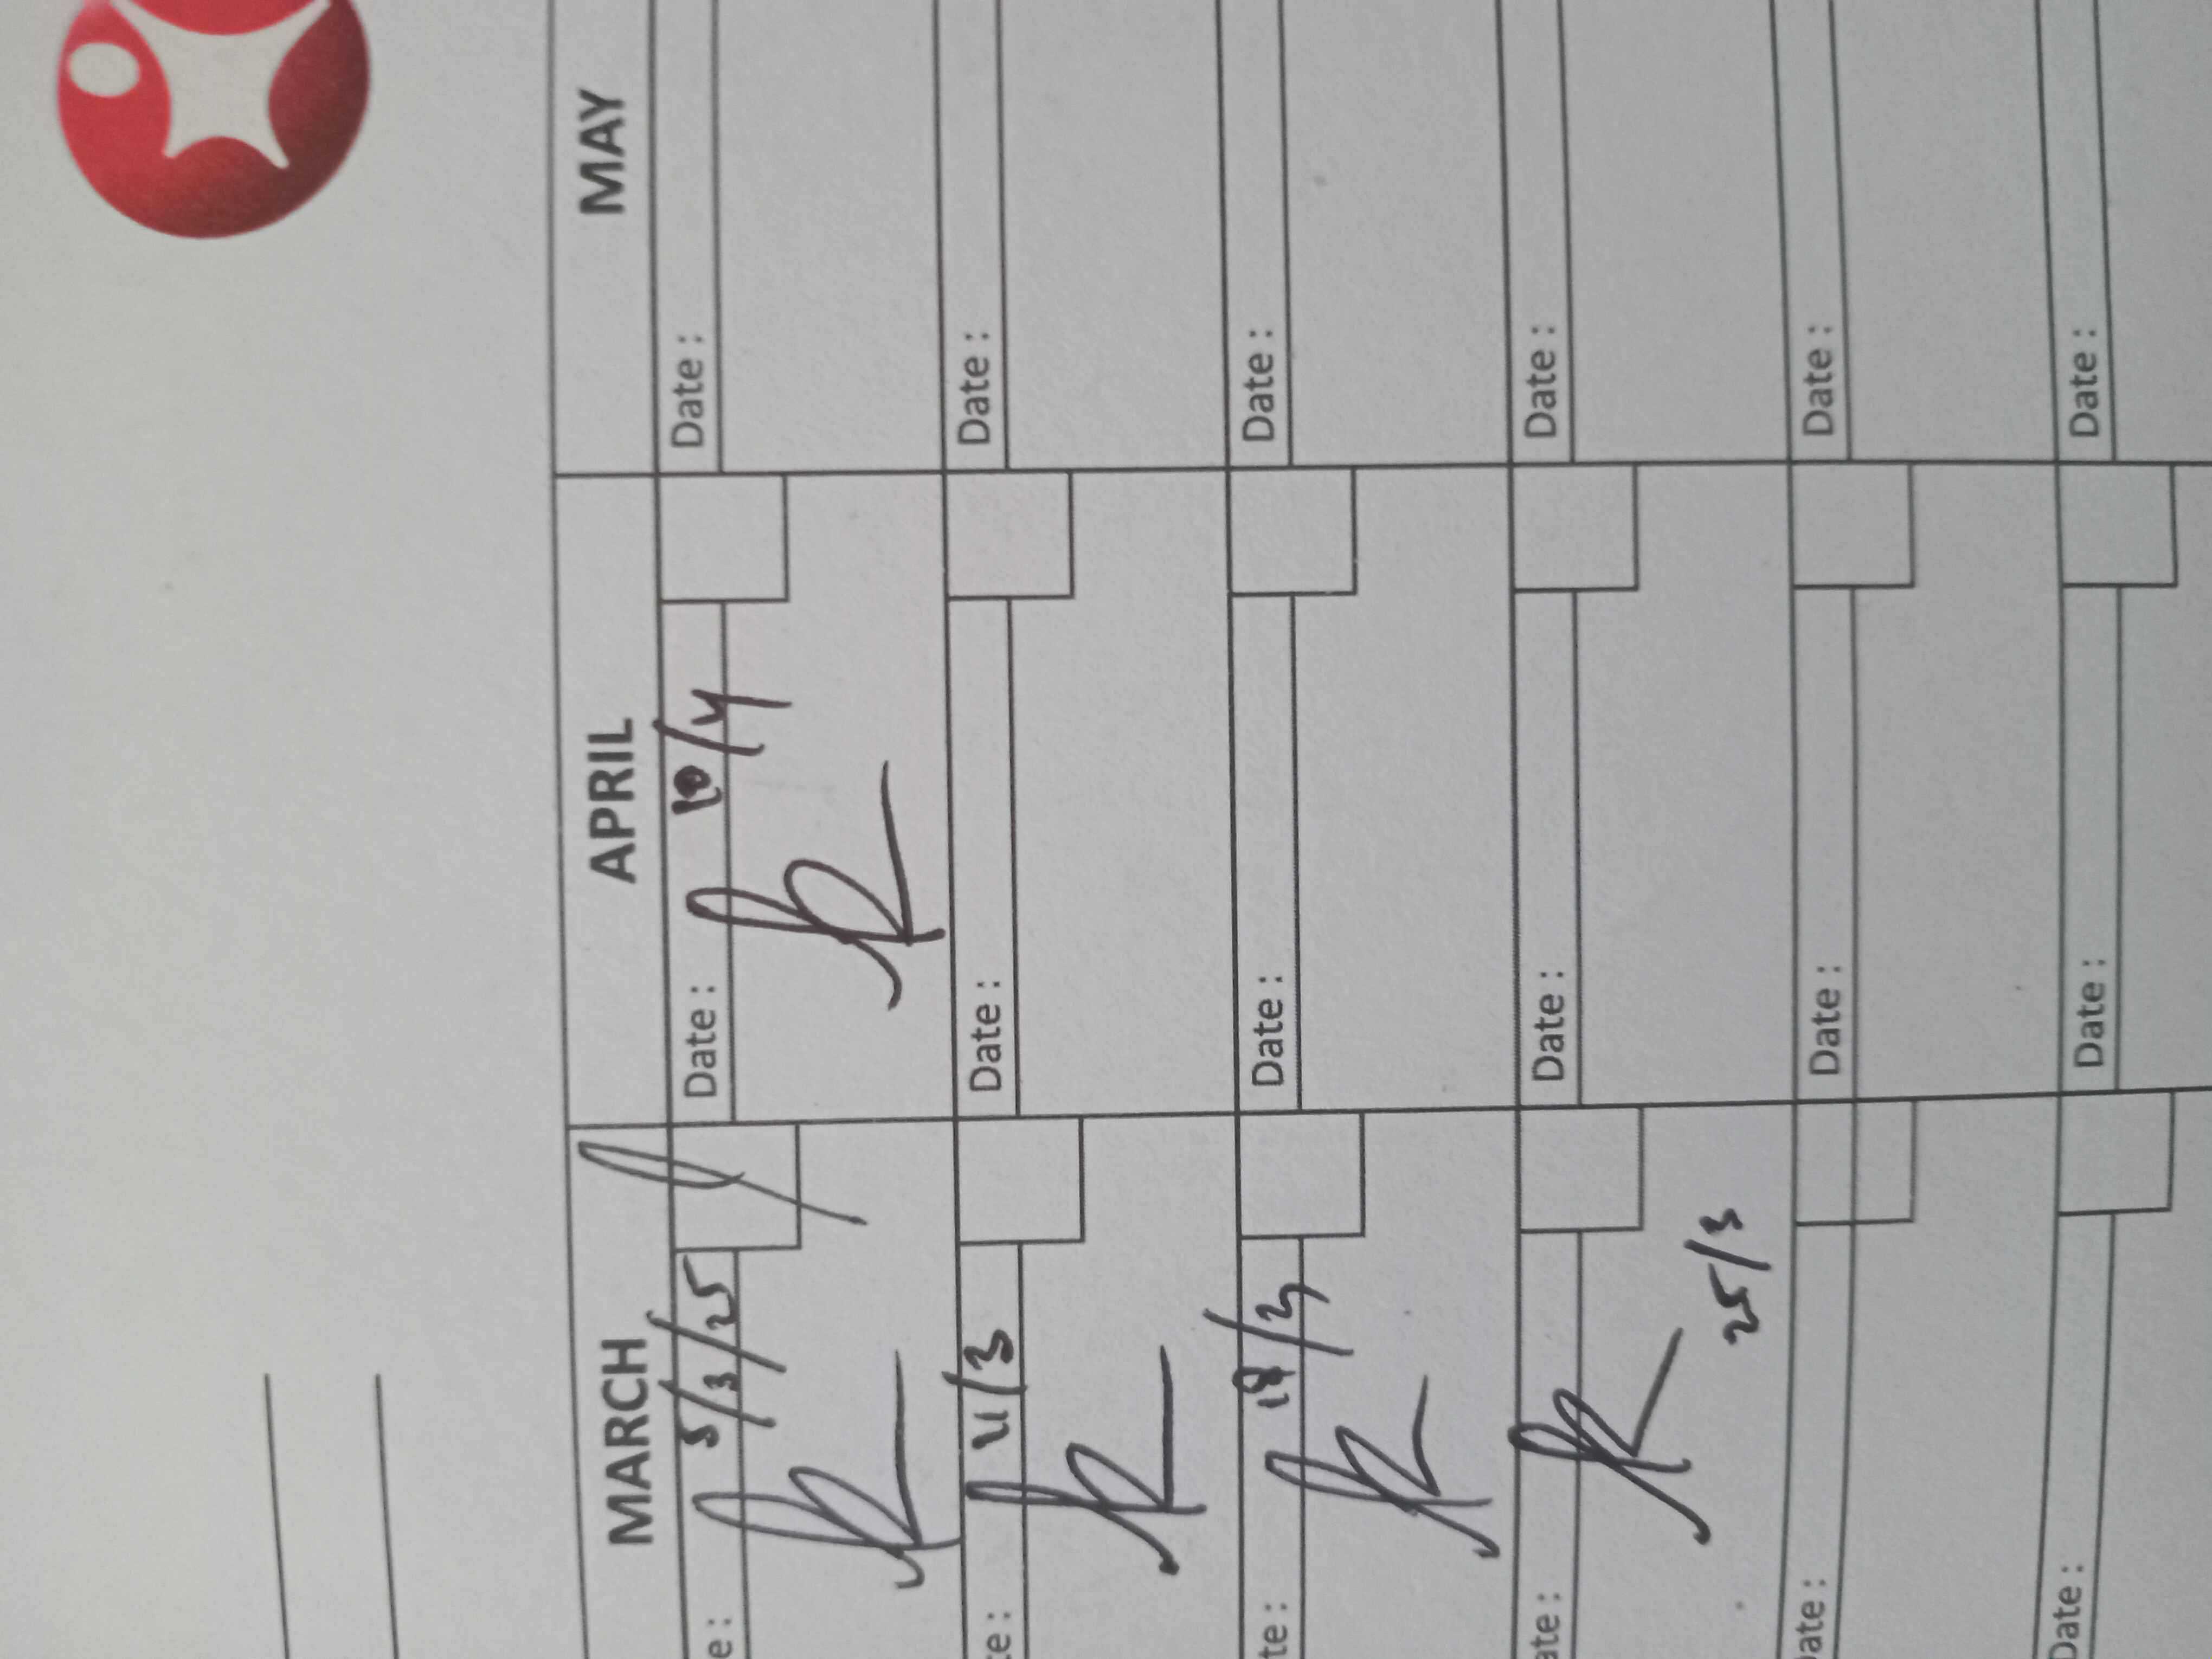 MARCH APRIL MAY
e: 5/3/25 Date: 10/4 Date:
te: 11/3 Date: Date:
te: 18/3 Date: Date:
ate: Date: Date:
25/3
Date: Date: Date:
Date: Date: Date: